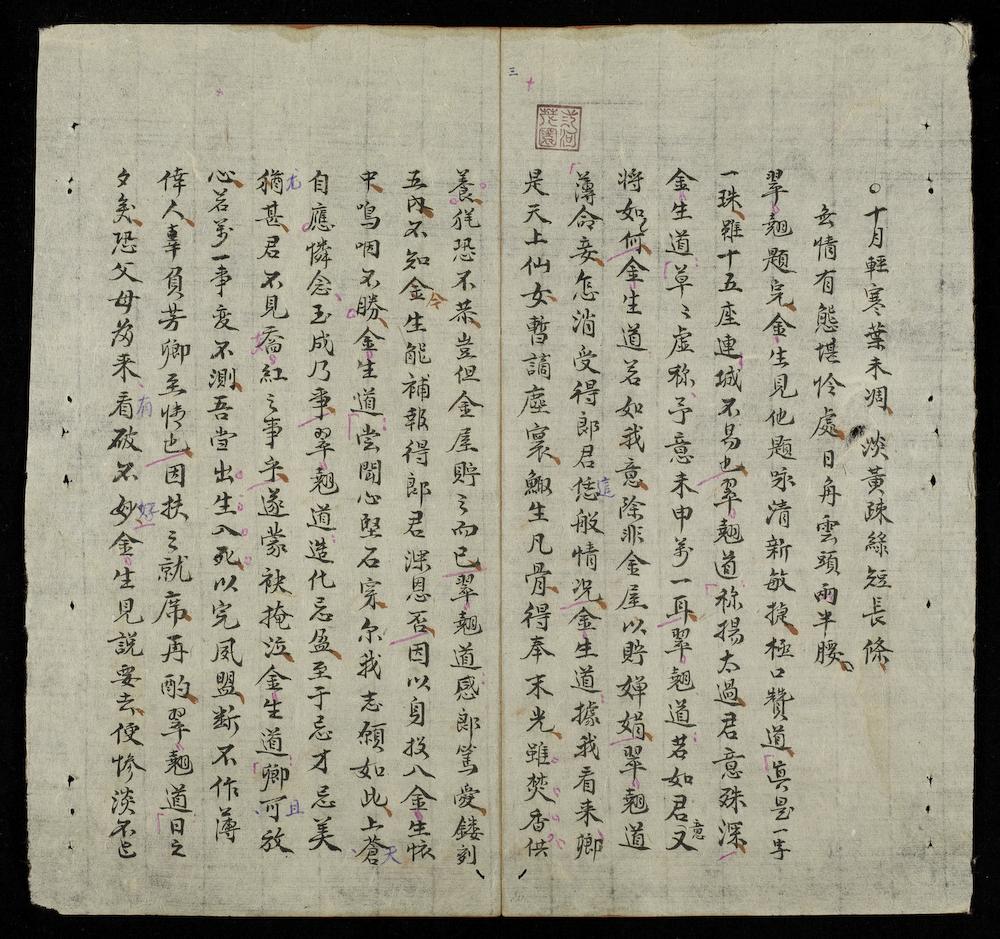 三
十月輕寒葉未凋 淡黃疎絲短長條
無情有態堪怜處 日舟雲頭兩半腰
翠翹題完金生見他題咏清新敏捷極口贊道真是一字
一珠雖十五座連城不易也翠翹道称揚太過君意殊深
金生道草〻虛称予意未申万一耳翠翹道若如君意又
將如何金生道若如我意除非金屋以貯嬋娟翠翹道
薄命妾怎消受得郎君這般情况金生道據我看来卿
是天上仙女暫謫塵寰鯫生凡骨得奉末光雖焚香供
養猶恐不恭豈但金屋貯之而已翠翹道感郎篤愛鏤刻
五内不知今生能補報得郎君深恩否因以身投入金生懷
中嗚咽不勝金生道嘗聞心堅石穿尔我志願如此上蒼天
自應憐念玉成乃事翠翹道造化忌盈至于忌才忌美
猶尤甚君不見嬌紅之事乎遂蒙袂掩泣金生道卿可且放
心若万一事变不測吾當出生入死以完夙盟断不作薄
倖人辜負芳卿至情也因扶之就席再酌翠翹道日之
夕矣恐父母有来看破不妙金生見說要去便惨淡不已